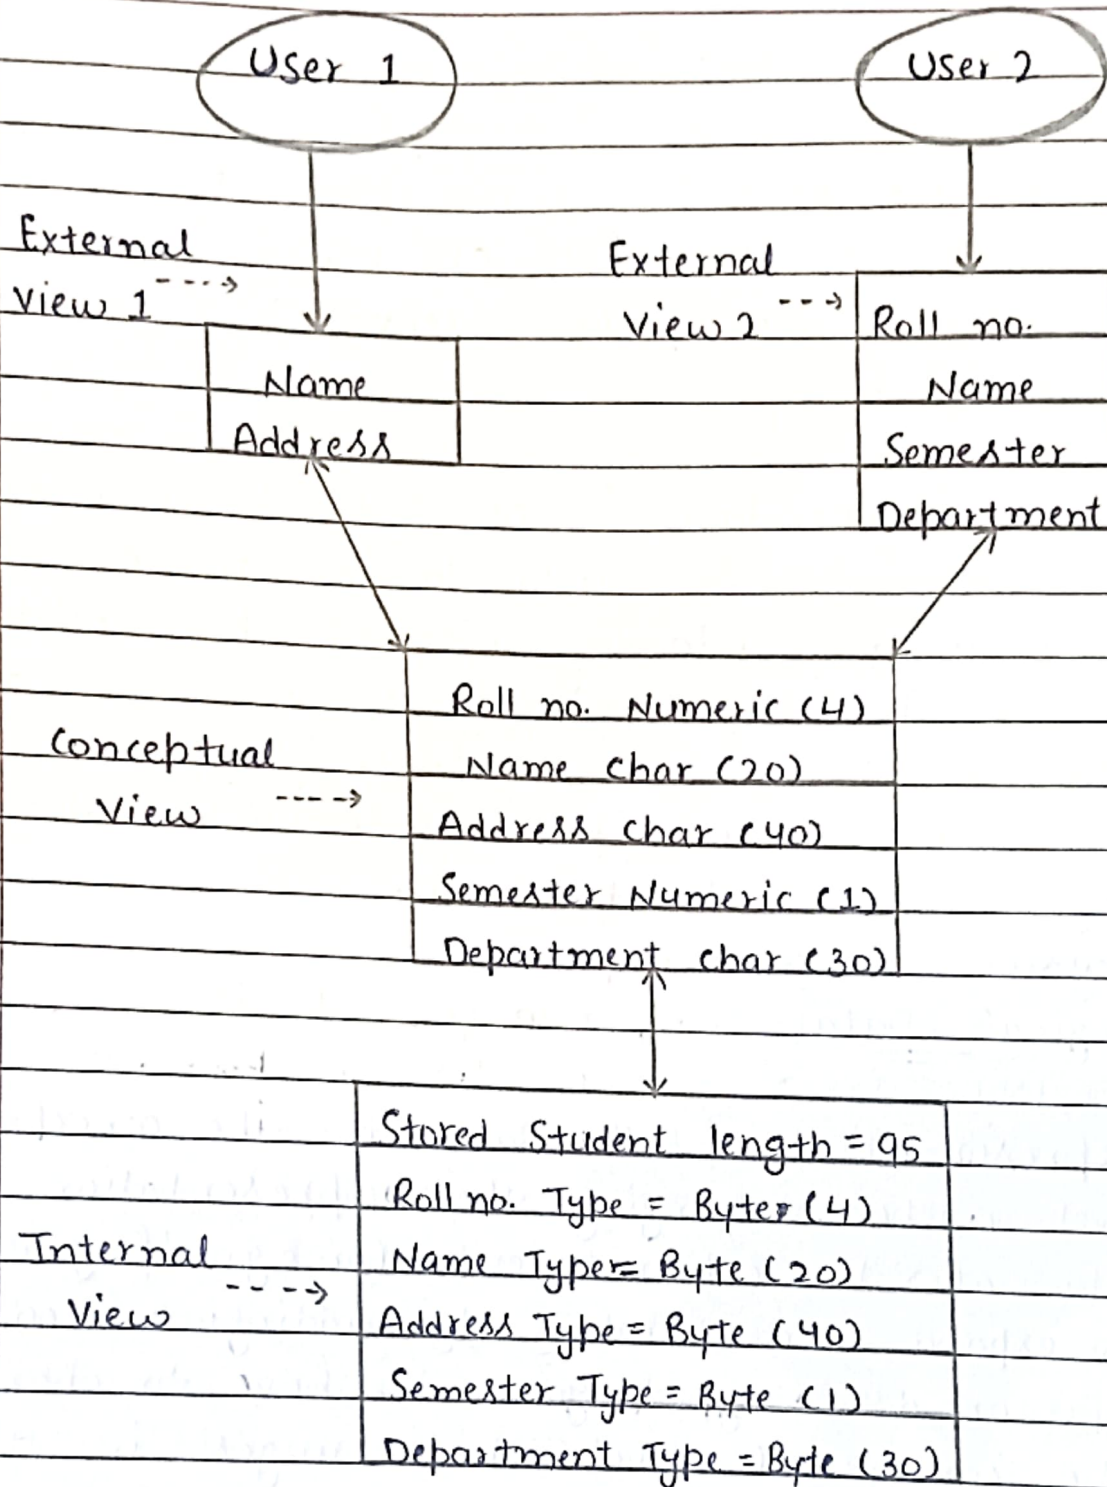 User 1
User 2
External
View 1
External
View 2
Name
Address
Roll no.
Name
Semester
Department
Conceptual
View
Roll no. Numeric (4)
Name Char (20)
Address Char (40)
Semester Numeric (1)
Department Char (30)
Internal
View
Stored Student length = 95
Roll no. Type = Byter (4)
Name Type= Byte (20)
Address Type = Byte (40)
Semester Type = Byte (1)
Department Type = Byte (30)